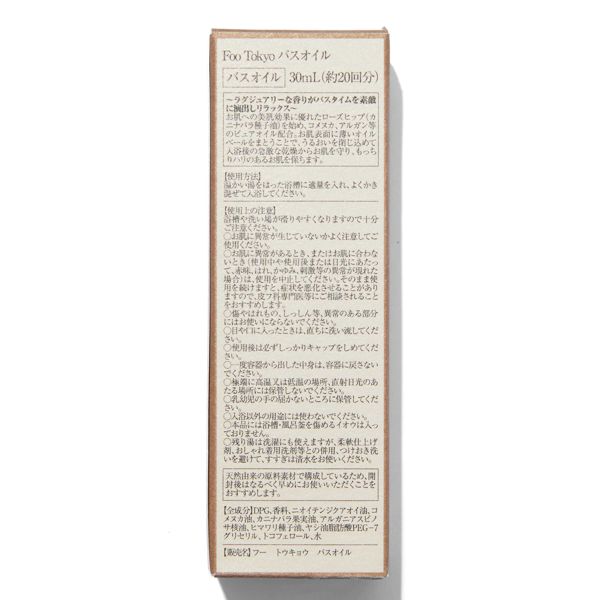 Foo Tokyo バスオイル
バスオイル 30mL(約20回分)
～ラグジュアリーな香りがバスタイムを素敵
に演出しリラックス～
お肌への美肌効果に優れたローズヒップ(カ
ニナバラ種子油)を始め、コメヌカ、アルガン等
のピュアオイル配合。お肌表面に薄いオイル
ベールをまとうことで、うるおいを閉じ込めて
入浴後の急激な乾燥からお肌を守り、もっち
りハリのあるお肌を保ちます。
【使用方法】
温かい湯をはった浴槽に適量を入れ、よくかき
混ぜて入浴してください。
【使用上の注意】
浴槽や洗い場が滑りやすくなりますので十分
ご注意ください。
○お肌に異常が生じていないかよく注意してご
使用ください。
○お肌に異常があるとき、またはお肌に合わな
いとき(使用中や使用後または日光にあたっ
て、赤味、はれ、かゆみ、刺激等の異常が現れた
場合)は、使用を中止してください。そのまま使用
を続けますと、症状を悪化させることがあり
ますので、皮フ科専門医等にご相談されること
をおすすめします。
○傷やはれもの、しっしん等、異常のある部分
にはお使いにならないでください。
○目や口に入ったときは、直ちに洗い流してくだ
さい。
○使用後は必ずしっかりキャップをしめてくだ
さい。
○一度容器から出した中身は、容器に戻さない
でください。
○極端に高温又は低温の場所、直射日光のあ
たる場所には保管しないでください。
○乳幼児の手の届かないところに保管してくだ
さい。
○入浴以外の用途には使わないでください。
○本品には浴槽・風呂釜を傷めるイオウは入っ
ておりません。
○残り湯は洗濯にも使えますが、柔軟仕上げ
剤、おしゃれ着用洗剤等との併用、つけおき洗
いを避けて、すすぎは清水をお使いください。
天然由来の原料素材で構成しているため、開
封後はなるべく早めにお使いいただくことを
おすすめします。
【全成分】DPG、香料、ニオイテンジクアオイ油、コ
メヌカ油、カニナバラ果実油、アルガニアスピノ
サ核油、ヒマワリ種子油、ヤシ油脂肪酸PEG-7
グリセリル、トコフェロール、水
【販売名】フー トウキョウ バスオイル